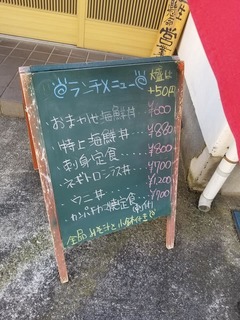 ◎ランチメニュー◎
大盛は
+50円
おまかせ海鮮丼 ¥600
特上海鮮丼‥ ¥880
刺身定食‥‥ ¥800
ネギトロシラス丼‥ ¥700
ウニ丼‥‥‥ ¥1,200
カンパチカマ焼定食‥ ¥700
全品 みそ汁と小鉢付き
営業中